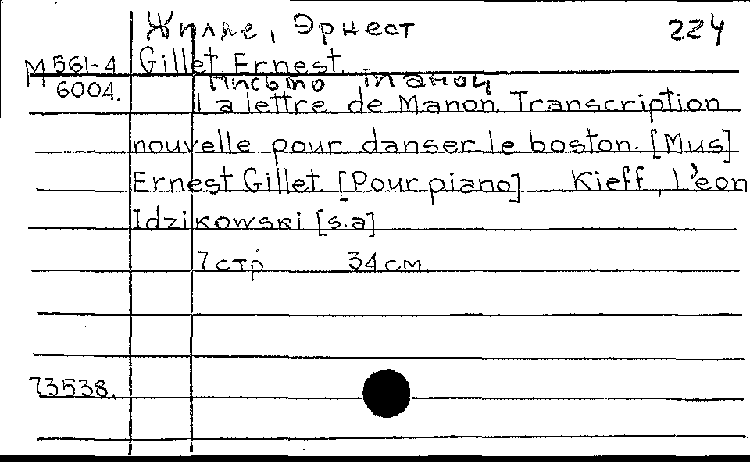 Жилле, Эрнест 224
М 561-4 Gillet Ernest.
6004. Письмо Манон
La lettre de Manon. Transcription
nouvelle pour danser le boston. [Mus]
Ernest Gillet. [Pour piano] Kieff, L'eon
Idzikowski [s.a]
7 стр 34 см.
73538.